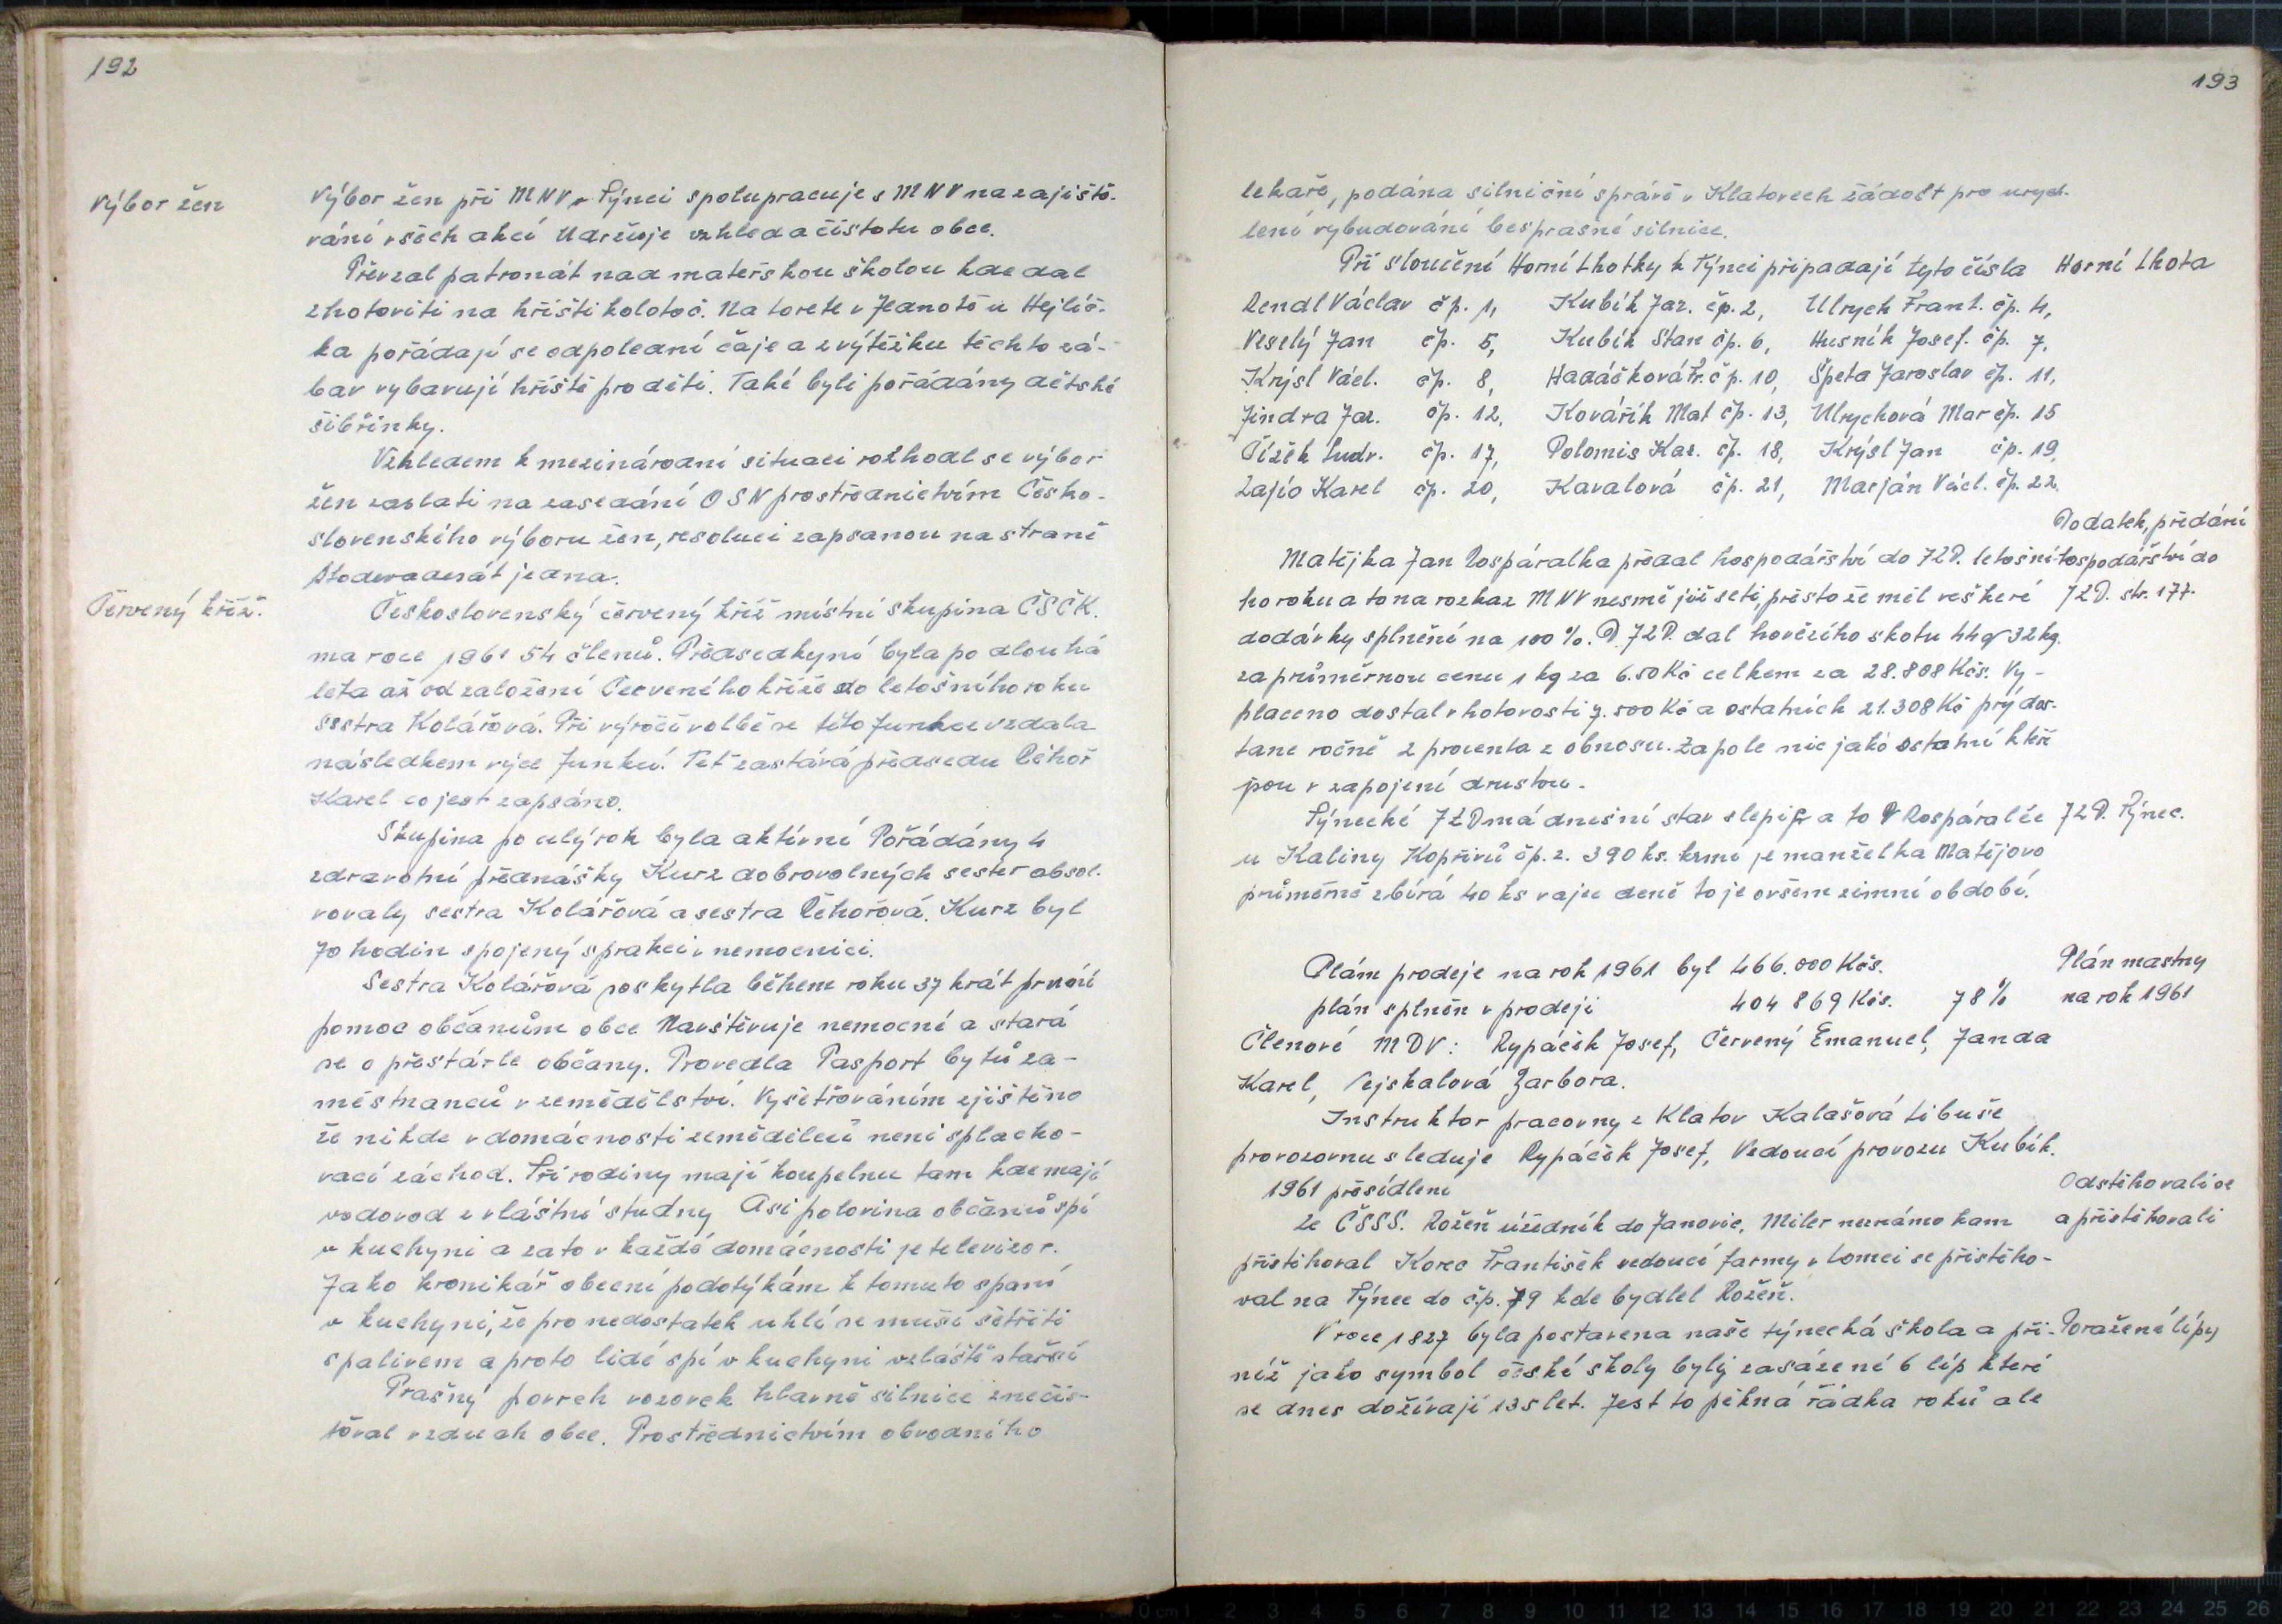 192
Výbor žen
Výbor žen při MNV v Týnci spolupracuje s MNV na zajiště-
vání všech akcí Udržuje vzhled a čistotu obce.
Převzal patronát nad mateřskou školou kde dal
zhotoviti na hřišti kolotoč. Na torete v Jednotě u Hejlíč-
ka pořádají se odpolední čaje a z výtěžku těchto zá-
bav vybavují hřiště pro děti. Také byli pořádány dětské
šibřinky.
Vzhledem k mezinárodní situaci rozhodl se výbor
žen zaslati na zasedání OSN prostřednictvím Česko-
slovenského výboru žen, resoluci zapsanou na straně
Stodevadesát jedna.
Červený kříž.
Československý červený kříž místní skupina ČSČK.
ma roce 1961 54 členů. Předsedkyní byla po dlouhá
leta až od založení Červeného kříže do letošního roku
sestra Kolářová. Při výročí volbě se této funkce vzdala
následkem výce funkcí. Teť zastává předsedu Řehoř
Karel co jest zapsáno.
Skupina po celý rok byla aktivní Pořádány 4
zdravotní přednášky Kurz dobrovolných sester absol-
vovaly sestra Kolářová a sestra Řehořová. Kurz byl
70 hodin spojený s prakci v nemocnici.
Sestra Kolářová poskytla během roku 37 krát první
pomoc občanům obce Navštěvuje nemocné a stará
se o přestárle občany. Provedla Pasport bytů za-
městnanců v zemědělství. Vyšetřováním zjištěno
že nikde v domácnosti zemědělců není splacho-
vací záchod. Tři rodiny mají koupelnu tam kde mají
vodovod z vláštní studny Asi polovina občanů spí
v kuchyni a zato v každé domácnosti je televizor.
Jako kronikář obecní podotýkám k tomuto spaní
v kuchyni, že pro nedostatek uhlí se muší šetřiti
s palivem a proto lidé spí v kuchyni vzláště starší
Prašný povrch vozovek hlavně silnice znečis-
ťoval vzduch obce. Prostřednictvím obvodního
193
lekaře, podána silniční správě v Klatovech žádost pro urych-
lení vybudování besprašné silnice.
Při sloučení Horní Lhotky k Týnci připadají tyto čísla
Horní Lhota
Rendl Václav čp. 1, Kubík Jar. čp. 2, Ulrych Frant. čp. 4,
Veselý Jan čp. 5, Kubík Stan čp. 6, Husník Josef. čp. 7,
Krýsl Václ. čp. 8, Hadáčková Fr. čp. 10, Špeta Jaroslav čp. 11,
Jindra Jar. čp. 12, Kovářík Mat čp. 13, Ulrychová Mar čp. 15
Čížek Ludv. čp. 17, Polomis Kar. čp. 18, Krýsl Jan čp. 19,
Zajíc Karel čp. 20, Kavalová čp. 21, Marján Václ. čp. 22.
Dodatek, předání
Matějka Jan Rospáralka předal hospodářství do JZD. letošní
hospodářství do
ho roku a to na rozkaz MNV nesmě již seti, přesto že měl veškeré
JZD. str. 177.
dodávky splnění na 100 %. D. JZD. dal hovězího skotu 44 q 32 kg.
za průměrnou cenu 1 kg za 6.50 Kč celkem za 28.808 Kčs. Vy-
placeno dostal v hotovosti 7.500 Kč a ostatních 21.308 Kč prý dos-
tane ročně 2 procenta z obnosu. Za pole nic jako ostatní kteř
jsou v zapojení drustvu.
Týnecké JZD má dnešní stav slepic a to v Rospáralce
JZD. Týnec.
u Kaliny Kopřivů čp. 2. 390 ks. krmí je manželka Matějovo
průměrně zbírá 40 ks vajec deně to je ovšem zimní období.
Plám prodeje na rok 1961 byl 466.000 Kčs.
Plán mastny
plán splněn v prodeji 404 869 Kčs. 78 %
na rok 1961
Členové MDV: Rypáček Josef, Červený Emanuel, Janda
Karel, Vejskalová Barbora.
Instruktor pracovny z Klatov Kalašová Libuše
provozovnu sleduje Rypáček Josef, Vedoucí provozu Kubík.
1961 přesídleni
Odstěhovali se
Ze ČSSS. Rožeň úředník do Janovic, Miler neznámo kam
a přistěhovali
přistěhoval Korec František vedoucí farmy v Lomci se přistěho-
val na Týnec do čp. 79 kde bydlel Rožeň.
V roce 1827 byla postavena naše týnecká škola a při-
Poražené lípy
níž jako symbol české školy byly zasázené 6 líp které
se dnes dožívají 135 let. Jest to pěkná řádka roků ale